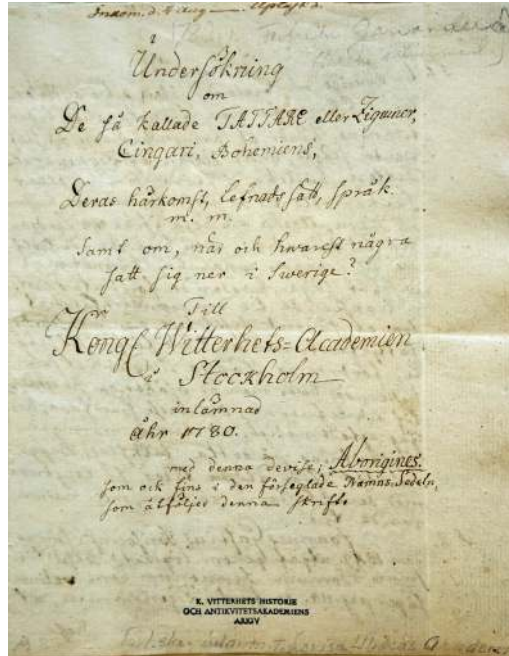 i
Undersökning
om
De så kallade TATTARE eller Zigeuner,
Cingari, Bohemiens,
Deras härkomst, lefnads sätt, språk.
m. m.
Samt om, när och hwarest några
satt sig ner i Swerige?
Till
Kongl Witterhets=Academien
i Stockholm
inlämnad
åhr 1780.
med denna devise; Aborigines.
som ock fins i den förseglade Namns-Sedeln,
som åtföljer denna skrift.
K. VITTERHETS HISTORIE
OCH ANTIKVITETSAKADEMIENS
ARKIV